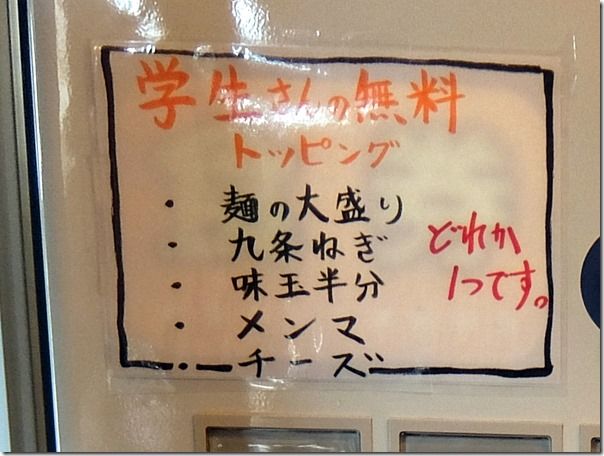 学生さんの無料
トッピング
・麺の大盛り
・九条ねぎ
・味玉半分
・メンマ
・チーズ
どれか
1つです。